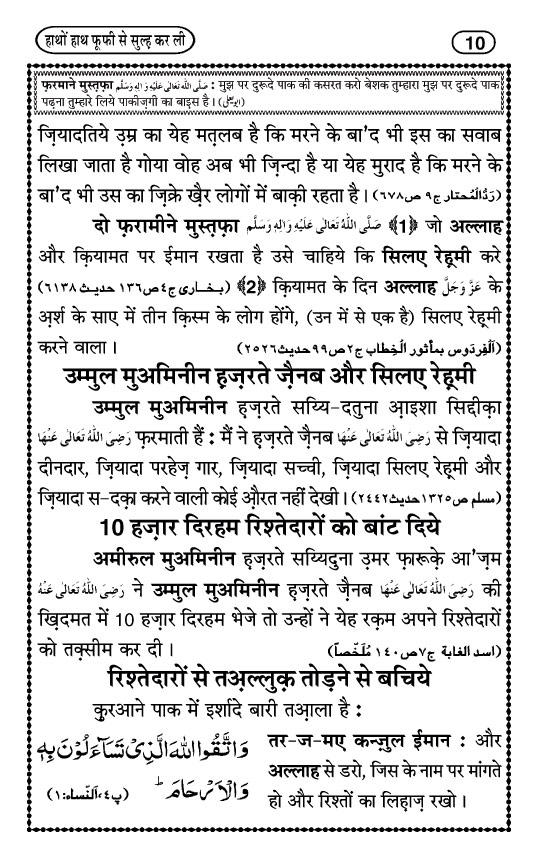 हाथों हाथ फूफी से सुल्ह कर ली
10
फ़रमाने मुस्त़फ़ा صَلَّى اللهُ تَعَالٰى عَلَيْهِ وَاٰلِهٖ وَسَلَّم : मुझ पर दुरूदे पाक की कसरत करो बेशक तुम्हारा मुझ पर दुरूदे पाक
पढ़ना तुम्हारे लिये पाकीज़गी का बाइस है । (ابویعلی)
ज़ियादतिये उ़म्र का येह मत़लब है कि मरने के बा'द भी इस का सवाब
लिखा जाता है गोया वोह अब भी ज़िन्दा है या येह मुराद है कि मरने के
बा'द भी उस का ज़िक्रे ख़ैर लोगों में बाक़ी रहता है । (رَدُّالْمُحتار ج٩ ص٦٧٨)
दो फ़रामीने मुस्त़फ़ा صَلَّى اللهُ تَعَالٰى عَلَيْهِ وَاٰلِهٖ وَسَلَّم ﴾1﴿ जो अल्लाह
और क़ियामत पर ईमान रखता है उसे चाहिये कि सिलए रेह़मी करे
(بخاری ج٤ ص١٣٦ حدیث ٦١٣٨) ﴾2﴿ क़ियामत के दिन अल्लाह عَزَّوَجَلَّ के
अ़र्श के साए में तीन क़िस्म के लोग होंगे, (उन में से एक है) सिलए रेह़मी
करने वाला । (اَلْفِردَوس بمأثور الْخِطاب ج٢ ص٩٩ حدیث٢٥٢٦)
उम्मुल मुअमिनीन ह़ज़रते ज़ैनब और सिलए रेह़मी
उम्मुल मुअमिनीन ह़ज़रते सय्यि-दतुना आ़इशा सिद्दीक़ा
رَضِىَ اللهُ تَعَالٰى عَنْهَا फ़रमाती हैं : मैं ने ह़ज़रते ज़ैनब رَضِىَ اللهُ تَعَالٰى عَنْهَا से ज़ियादा
दीनदार, ज़ियादा परहेज़ गार, ज़ियादा सच्ची, ज़ियादा सिलए रेह़मी और
ज़ियादा स-दक़ा करने वाली कोई औ़रत नहीं देखी । (مسلم ص١٣٢٥ حدیث٢٤٤٢)
10 हज़ार दिरहम रिश्तेदारों को बांट दिये
अमीरुल मुअमिनीन ह़ज़रते सय्यिदुना उ़मर फ़ारूक़े आ'ज़म
رَضِىَ اللهُ تَعَالٰى عَنْهُ ने उम्मुल मुअमिनीन ह़ज़रते ज़ैनब رَضِىَ اللهُ تَعَالٰى عَنْهَا की
ख़िदमत में 10 हज़ार दिरहम भेजे तो उन्हों ने येह रक़म अपने रिश्तेदारों
को तक़्सीम कर दी । (اسد الغابة ج٧ ص١٤٠ مُلَخّصاً)
रिश्तेदारों से तअ़ल्लुक़ तोड़ने से बचिये
क़ुरआने पाक में इर्शादे बारी तआ़ला है :
وَاتَّقُوا اللّٰهَ الَّذِیْ تَسَآءَلُوْنَ بِهٖ
وَالْاَرْحَامَ ؕ (پ٤، اَلنِّساء:١)
तर-ज-मए कन्ज़ुल ईमान : और
अल्लाह से डरो, जिस के नाम पर मांगते
हो और रिश्तों का लिह़ाज़ रखो ।